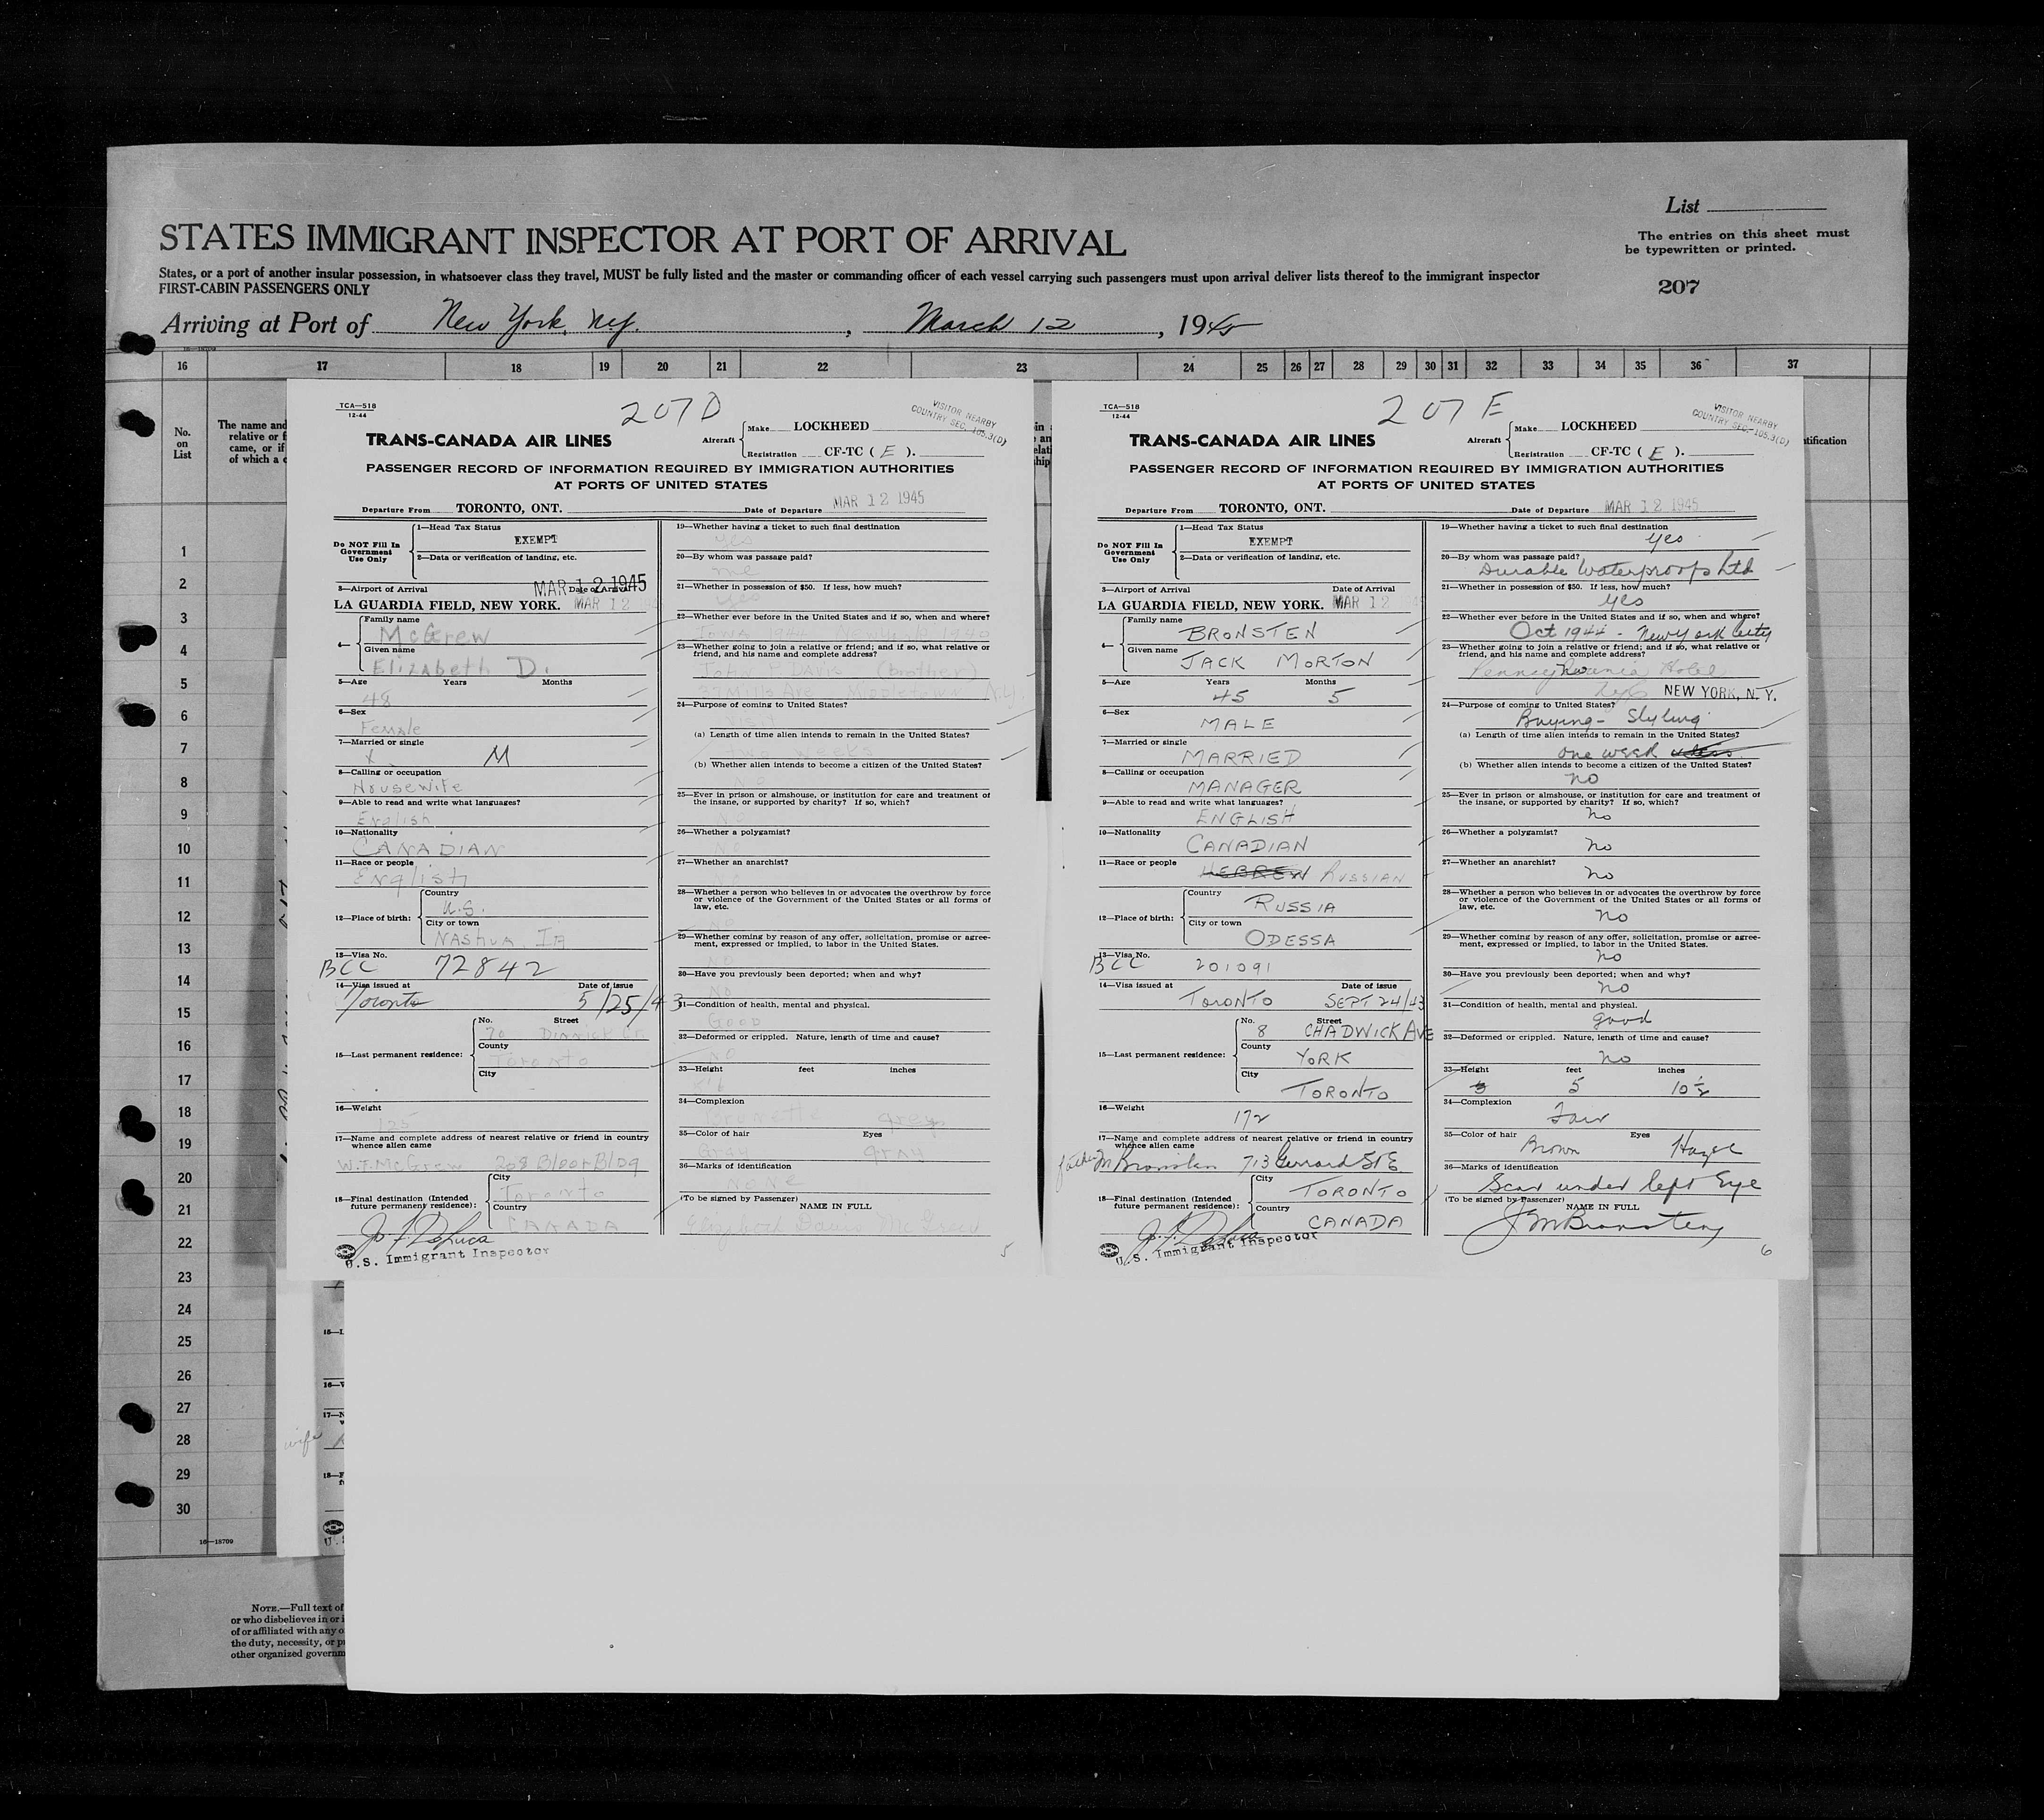 List
STATES IMMIGRANT INSPECTOR AT PORT OF ARRIVAL
The entries on this sheet must
be typewritten or printed.
States, or a port of another insular possession, in whatsoever class they travel, MUST be fully listed and the master or commanding officer of each vessel carrying such passengers must upon arrival deliver lists thereof to the immigrant inspector
FIRST-CABIN PASSENGERS ONLY
207
Arriving at Port of New York, N.Y., March 12, 1945
16 17 18 19 20 21 22 23 24 25 26 27 28 29 30 31 32 33 34 35 36 37
No.
on
List
The name and
relative or f
came, or if
of which a c
1
2
3
4
5
6
7
8
9
10
11
12
13
14
15
16
17
18
19
20
21
22
23
24
25
26
27
28
29
30
16—18709
NOTE.—Full text of
or who disbelieves in or i
of or affiliated with any o
the duty, necessity, or p
other organized governm
wife
TCA—518
12-44
207 D
VISITOR NEARBY
COUNTRY SEC. 105.3(D)
TRANS-CANADA AIR LINES
Aircraft
Make LOCKHEED
Registration CF-TC ( E ).
PASSENGER RECORD OF INFORMATION REQUIRED BY IMMIGRATION AUTHORITIES
AT PORTS OF UNITED STATES
Departure From TORONTO, ONT. Date of Departure MAR 12 1945
Do NOT Fill In
Government
Use Only
1—Head Tax Status
EXEMPT
2—Data or verification of landing, etc.
3—Airport of Arrival Date of Arrival
MAR 12 1945
LA GUARDIA FIELD, NEW YORK. MAR 12
4—
Family name
McGrew
Given name
Elizabeth D.
5—Age Years Months
48
6—Sex
Female
7—Married or single
X M
8—Calling or occupation
Housewife
9—Able to read and write what languages?
English
10—Nationality
CANADIAN
11—Race or people
English
12—Place of birth:
Country
U.S.
City or town
Nashua, Ia
13—Visa No.
BCC 72842
14—Visa issued at Date of issue
Toronto 5/25/43
15—Last permanent residence:
No. Street
70
County
Toronto
City
16—Weight
125
17—Name and complete address of nearest relative or friend in country
whence alien came
W.F. McGrew 208 Bloor Bldg
18—Final destination (Intended
future permanent residence):
City
Toronto
Country
CANADA
U.S. Immigrant Inspector
19—Whether having a ticket to such final destination
Yes
20—By whom was passage paid?
me
21—Whether in possession of $50. If less, how much?
Yes
22—Whether ever before in the United States and if so, when and where?
Iowa
23—Whether going to join a relative or friend; and if so, what relative or
friend, and his name and complete address?
John Davis (brother)
37 Mills Ave. Middletown N.Y.
24—Purpose of coming to United States?
Visit
(a) Length of time alien intends to remain in the United States?
two weeks
(b) Whether alien intends to become a citizen of the United States?
No
25—Ever in prison or almshouse, or institution for care and treatment of
the insane, or supported by charity? If so, which?
No
26—Whether a polygamist?
No
27—Whether an anarchist?
28—Whether a person who believes in or advocates the overthrow by force
or violence of the Government of the United States or all forms of
law, etc.
29—Whether coming by reason of any offer, solicitation, promise or agree-
ment, expressed or implied, to labor in the United States.
No
30—Have you previously been deported; when and why?
No
31—Condition of health, mental and physical.
Good
32—Deformed or crippled. Nature, length of time and cause?
No
33—Height feet inches
34—Complexion
35—Color of hair Eyes
Gray gray
36—Marks of identification
NONE
(To be signed by Passenger) NAME IN FULL
Elizabeth Davis McGrew
5
TCA—518
12-44
207 E
VISITOR NEARBY
COUNTRY SEC. 105.3(D)
TRANS-CANADA AIR LINES
Aircraft
Make LOCKHEED
Registration CF-TC ( E ).
PASSENGER RECORD OF INFORMATION REQUIRED BY IMMIGRATION AUTHORITIES
AT PORTS OF UNITED STATES
Departure From TORONTO, ONT. Date of Departure MAR 12 1945
Do NOT Fill In
Government
Use Only
1—Head Tax Status
EXEMPT
2—Data or verification of landing, etc.
3—Airport of Arrival Date of Arrival
LA GUARDIA FIELD, NEW YORK. MAR 12
4—
Family name
BRONSTEN
Given name
JACK MORTON
5—Age Years Months
45 5
6—Sex
MALE
7—Married or single
MARRIED
8—Calling or occupation
MANAGER
9—Able to read and write what languages?
ENGLISH
10—Nationality
CANADIAN
11—Race or people
HEBREW RUSSIAN
12—Place of birth:
Country
RUSSIA
City or town
ODESSA
13—Visa No.
BCC 201091
14—Visa issued at Date of issue
TORONTO SEPT 24/43
15—Last permanent residence:
No. Street
8 CHADWICK AVE
County
YORK
City
TORONTO
16—Weight
172
17—Name and complete address of nearest relative or friend in country
whence alien came
father M Bronsten 713 Gerrard St E.
18—Final destination (Intended
future permanent residence):
City
TORONTO
Country
CANADA
U.S. Immigrant Inspector
19—Whether having a ticket to such final destination
yes
20—By whom was passage paid?
Durable Waterproofs Ltd
21—Whether in possession of $50. If less, how much?
yes
22—Whether ever before in the United States and if so, when and where?
Oct 1944 - New York City
23—Whether going to join a relative or friend; and if so, what relative or
friend, and his name and complete address?
no
Pennsylvania Hotel
NEW YORK, N. Y.
24—Purpose of coming to United States?
Buying - Styling
(a) Length of time alien intends to remain in the United States?
one week
(b) Whether alien intends to become a citizen of the United States?
no
25—Ever in prison or almshouse, or institution for care and treatment of
the insane, or supported by charity? If so, which?
no
26—Whether a polygamist?
no
27—Whether an anarchist?
no
28—Whether a person who believes in or advocates the overthrow by force
or violence of the Government of the United States or all forms of
law, etc.
no
29—Whether coming by reason of any offer, solicitation, promise or agree-
ment, expressed or implied, to labor in the United States.
no
30—Have you previously been deported; when and why?
no
31—Condition of health, mental and physical.
good
32—Deformed or crippled. Nature, length of time and cause?
no
33—Height feet inches
5 10½
34—Complexion
Fair
35—Color of hair Eyes
Brown Hazel
36—Marks of identification
Scar under left Eye
(To be signed by Passenger) NAME IN FULL
J M Bronsten
6